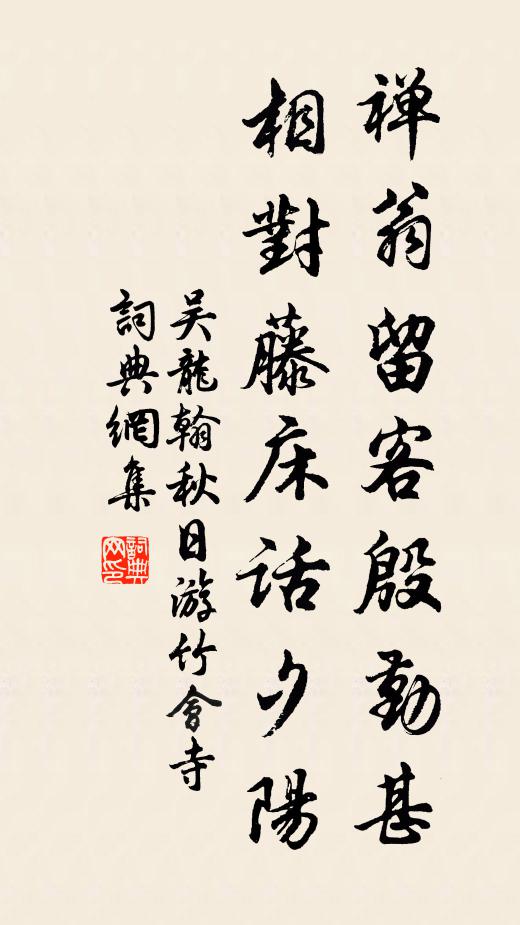 禅翁留客殷勤甚
相對藤床話夕陽
吴龍翰秋日游竹會寺
詞典網集
詞典网印